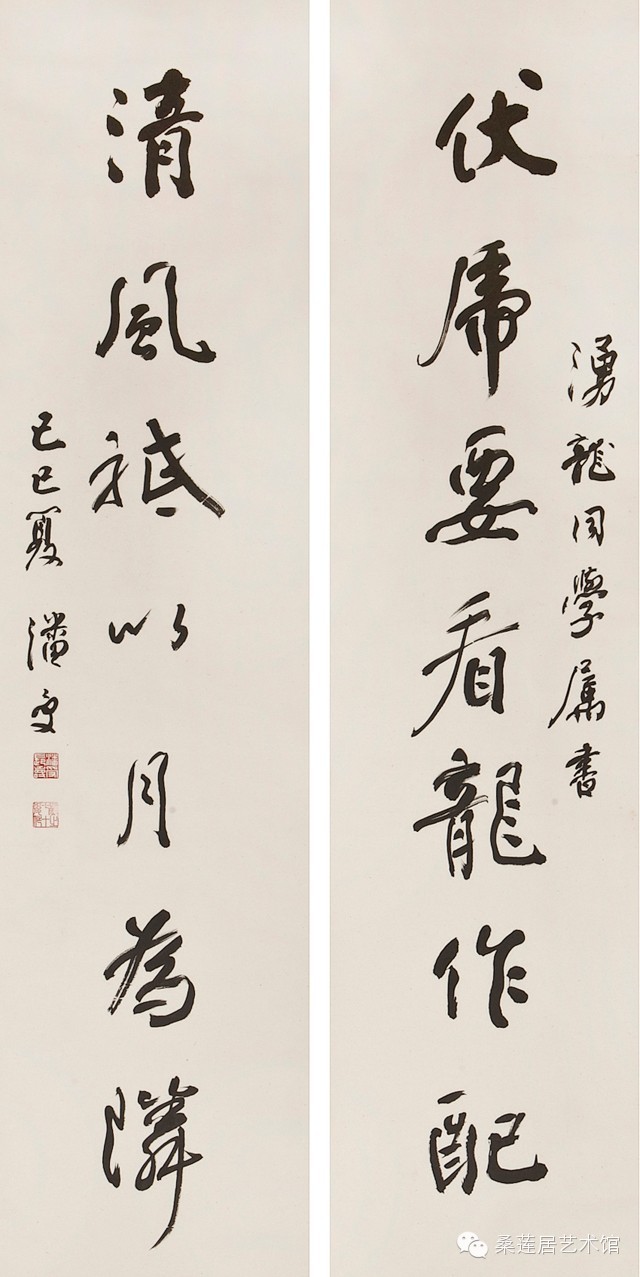 湧龍同學属書
伏虎要看龍作配
清風祗以月為隣
己巳夏 潘受
桑莲居艺术馆